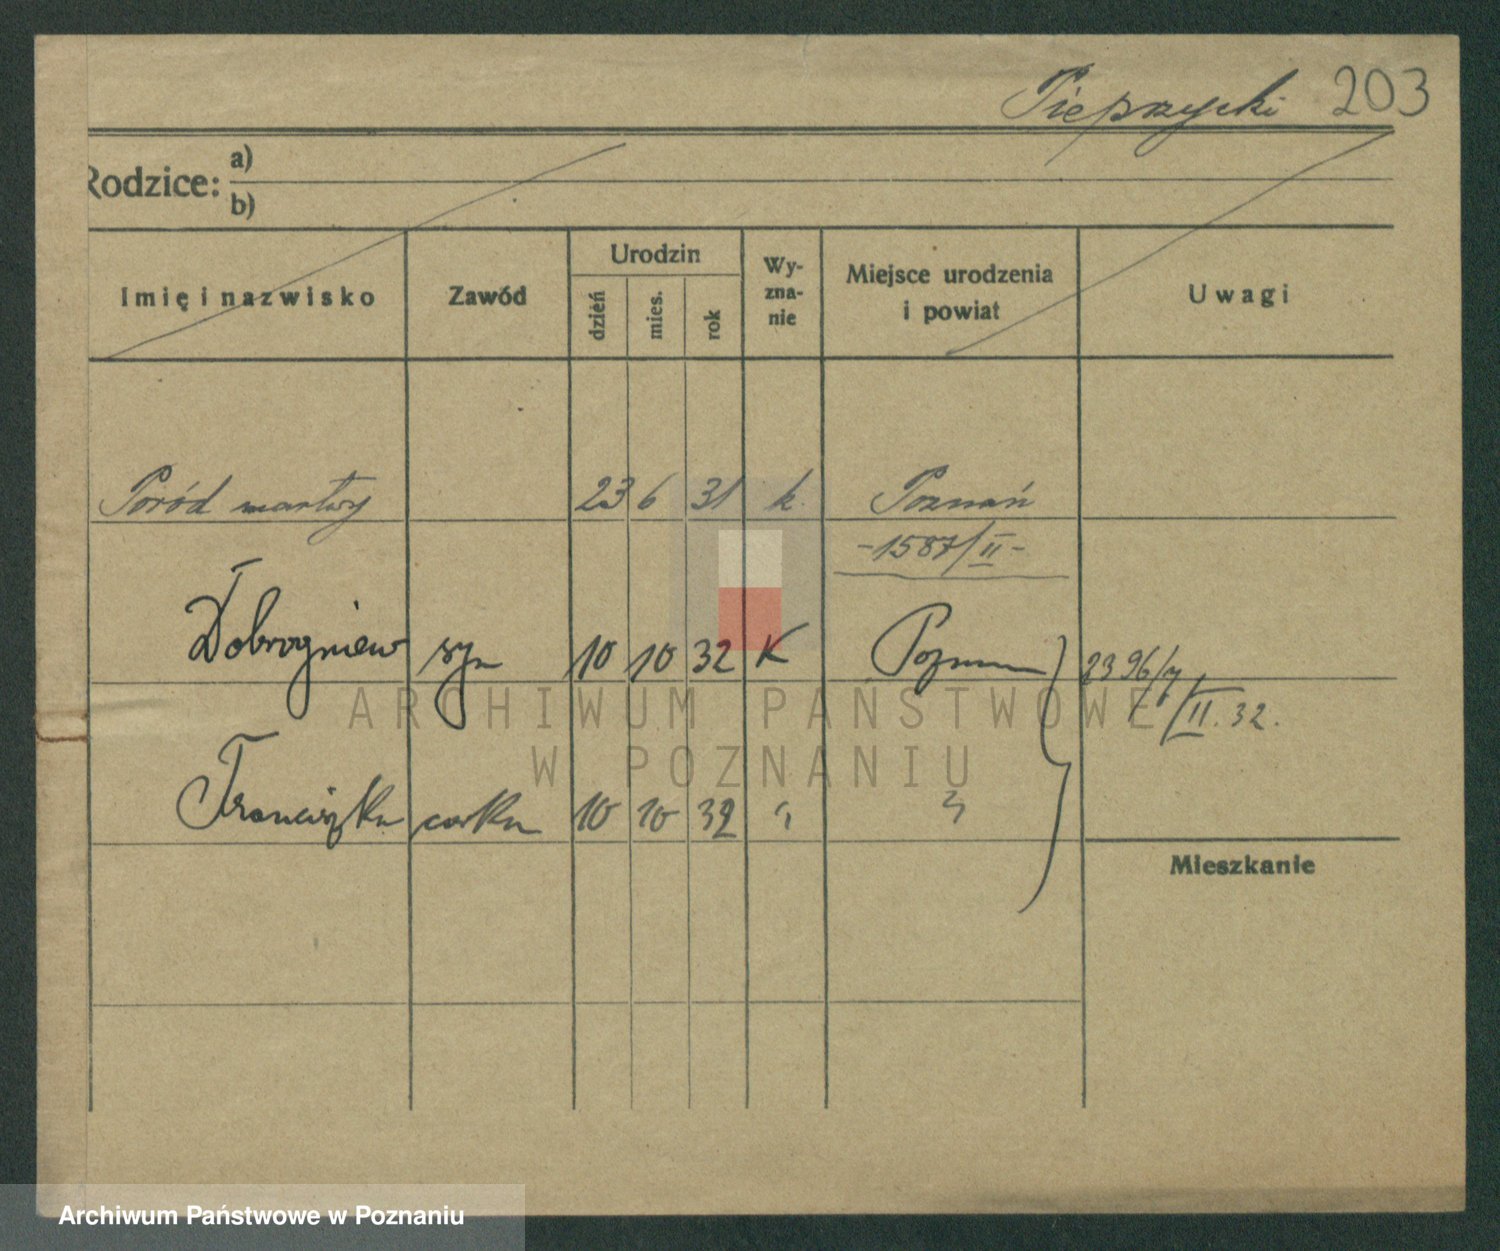 Pieprzycki 203
Rodzice: a)
b)
Imię i nazwisko Zawód Urodzin dzień mies. rok Wy-zna-nie Miejsce urodzenia i powiat Uwagi
Poród martwy 23 6 31 k. Poznań
-1587/II-
Dobrogniew syn 10 10 32 K Poznań 2396/
II. 32.
ARCHIWUM PAŃSTWOWE
W POZNANIU
Franciszka córka 10 10 32 "  "
Mieszkanie
Archiwum Państwowe w Poznaniu